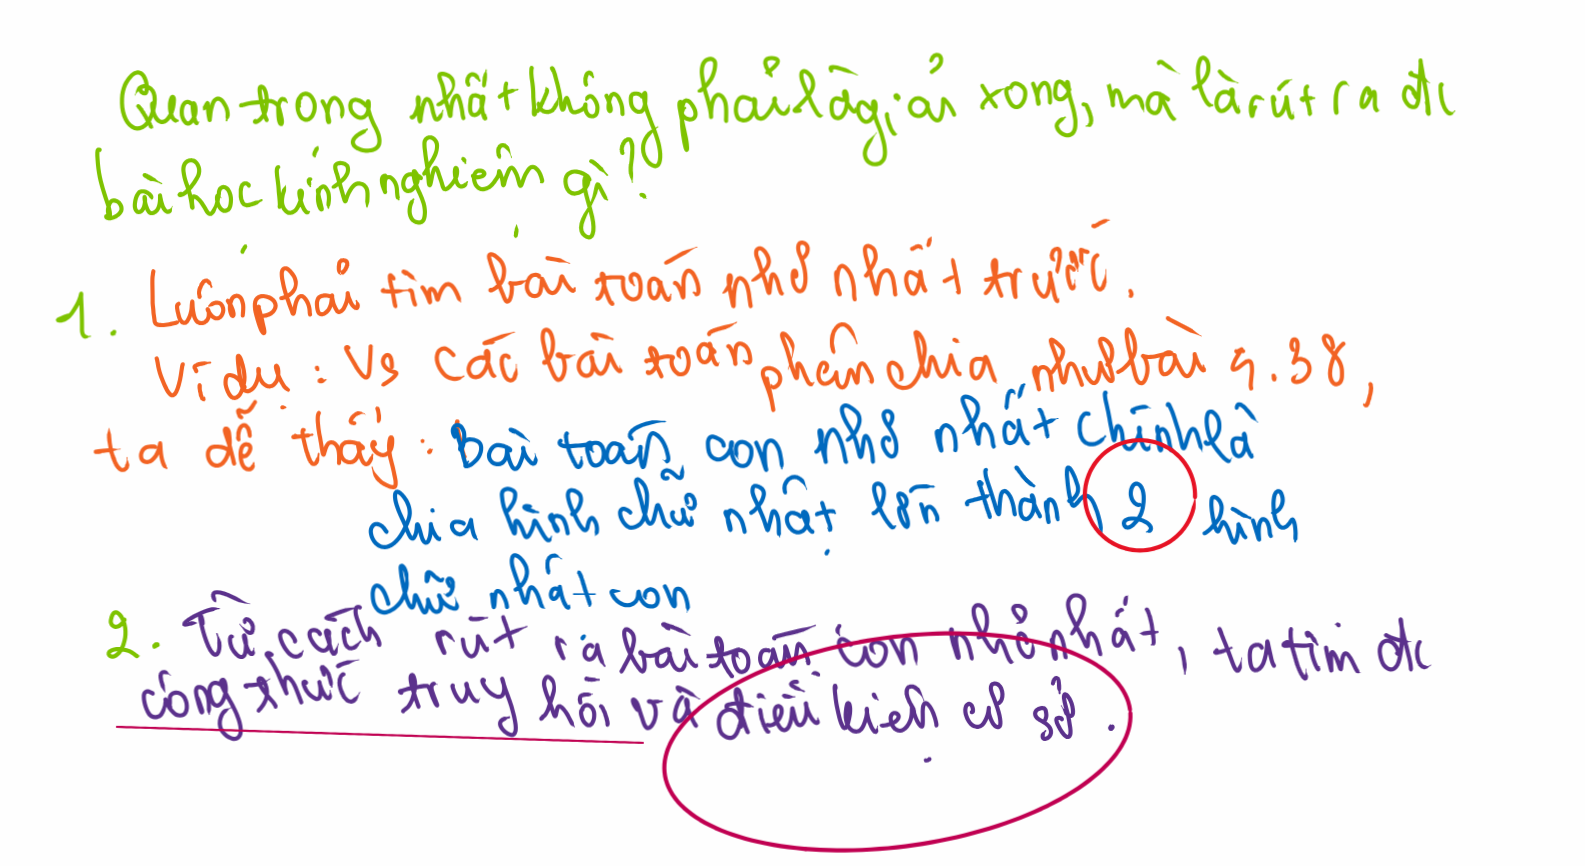 Quan trọng nhất không phải là giải xong, mà là rút ra đc
bài học kinh nghiệm gì?
1. Luôn phải tìm bài toán nhỏ nhất trước.
Ví dụ: Vs các bài toán phân chia như bài 4.38,
ta dễ thấy: Bài toán con nhỏ nhất chính là
chia hình chữ nhật lớn thành 2 hình
chữ nhật con
2. Từ cách rút ra bài toán con nhỏ nhất, ta tìm đc
công thức truy hồi và điều kiện cơ sở.